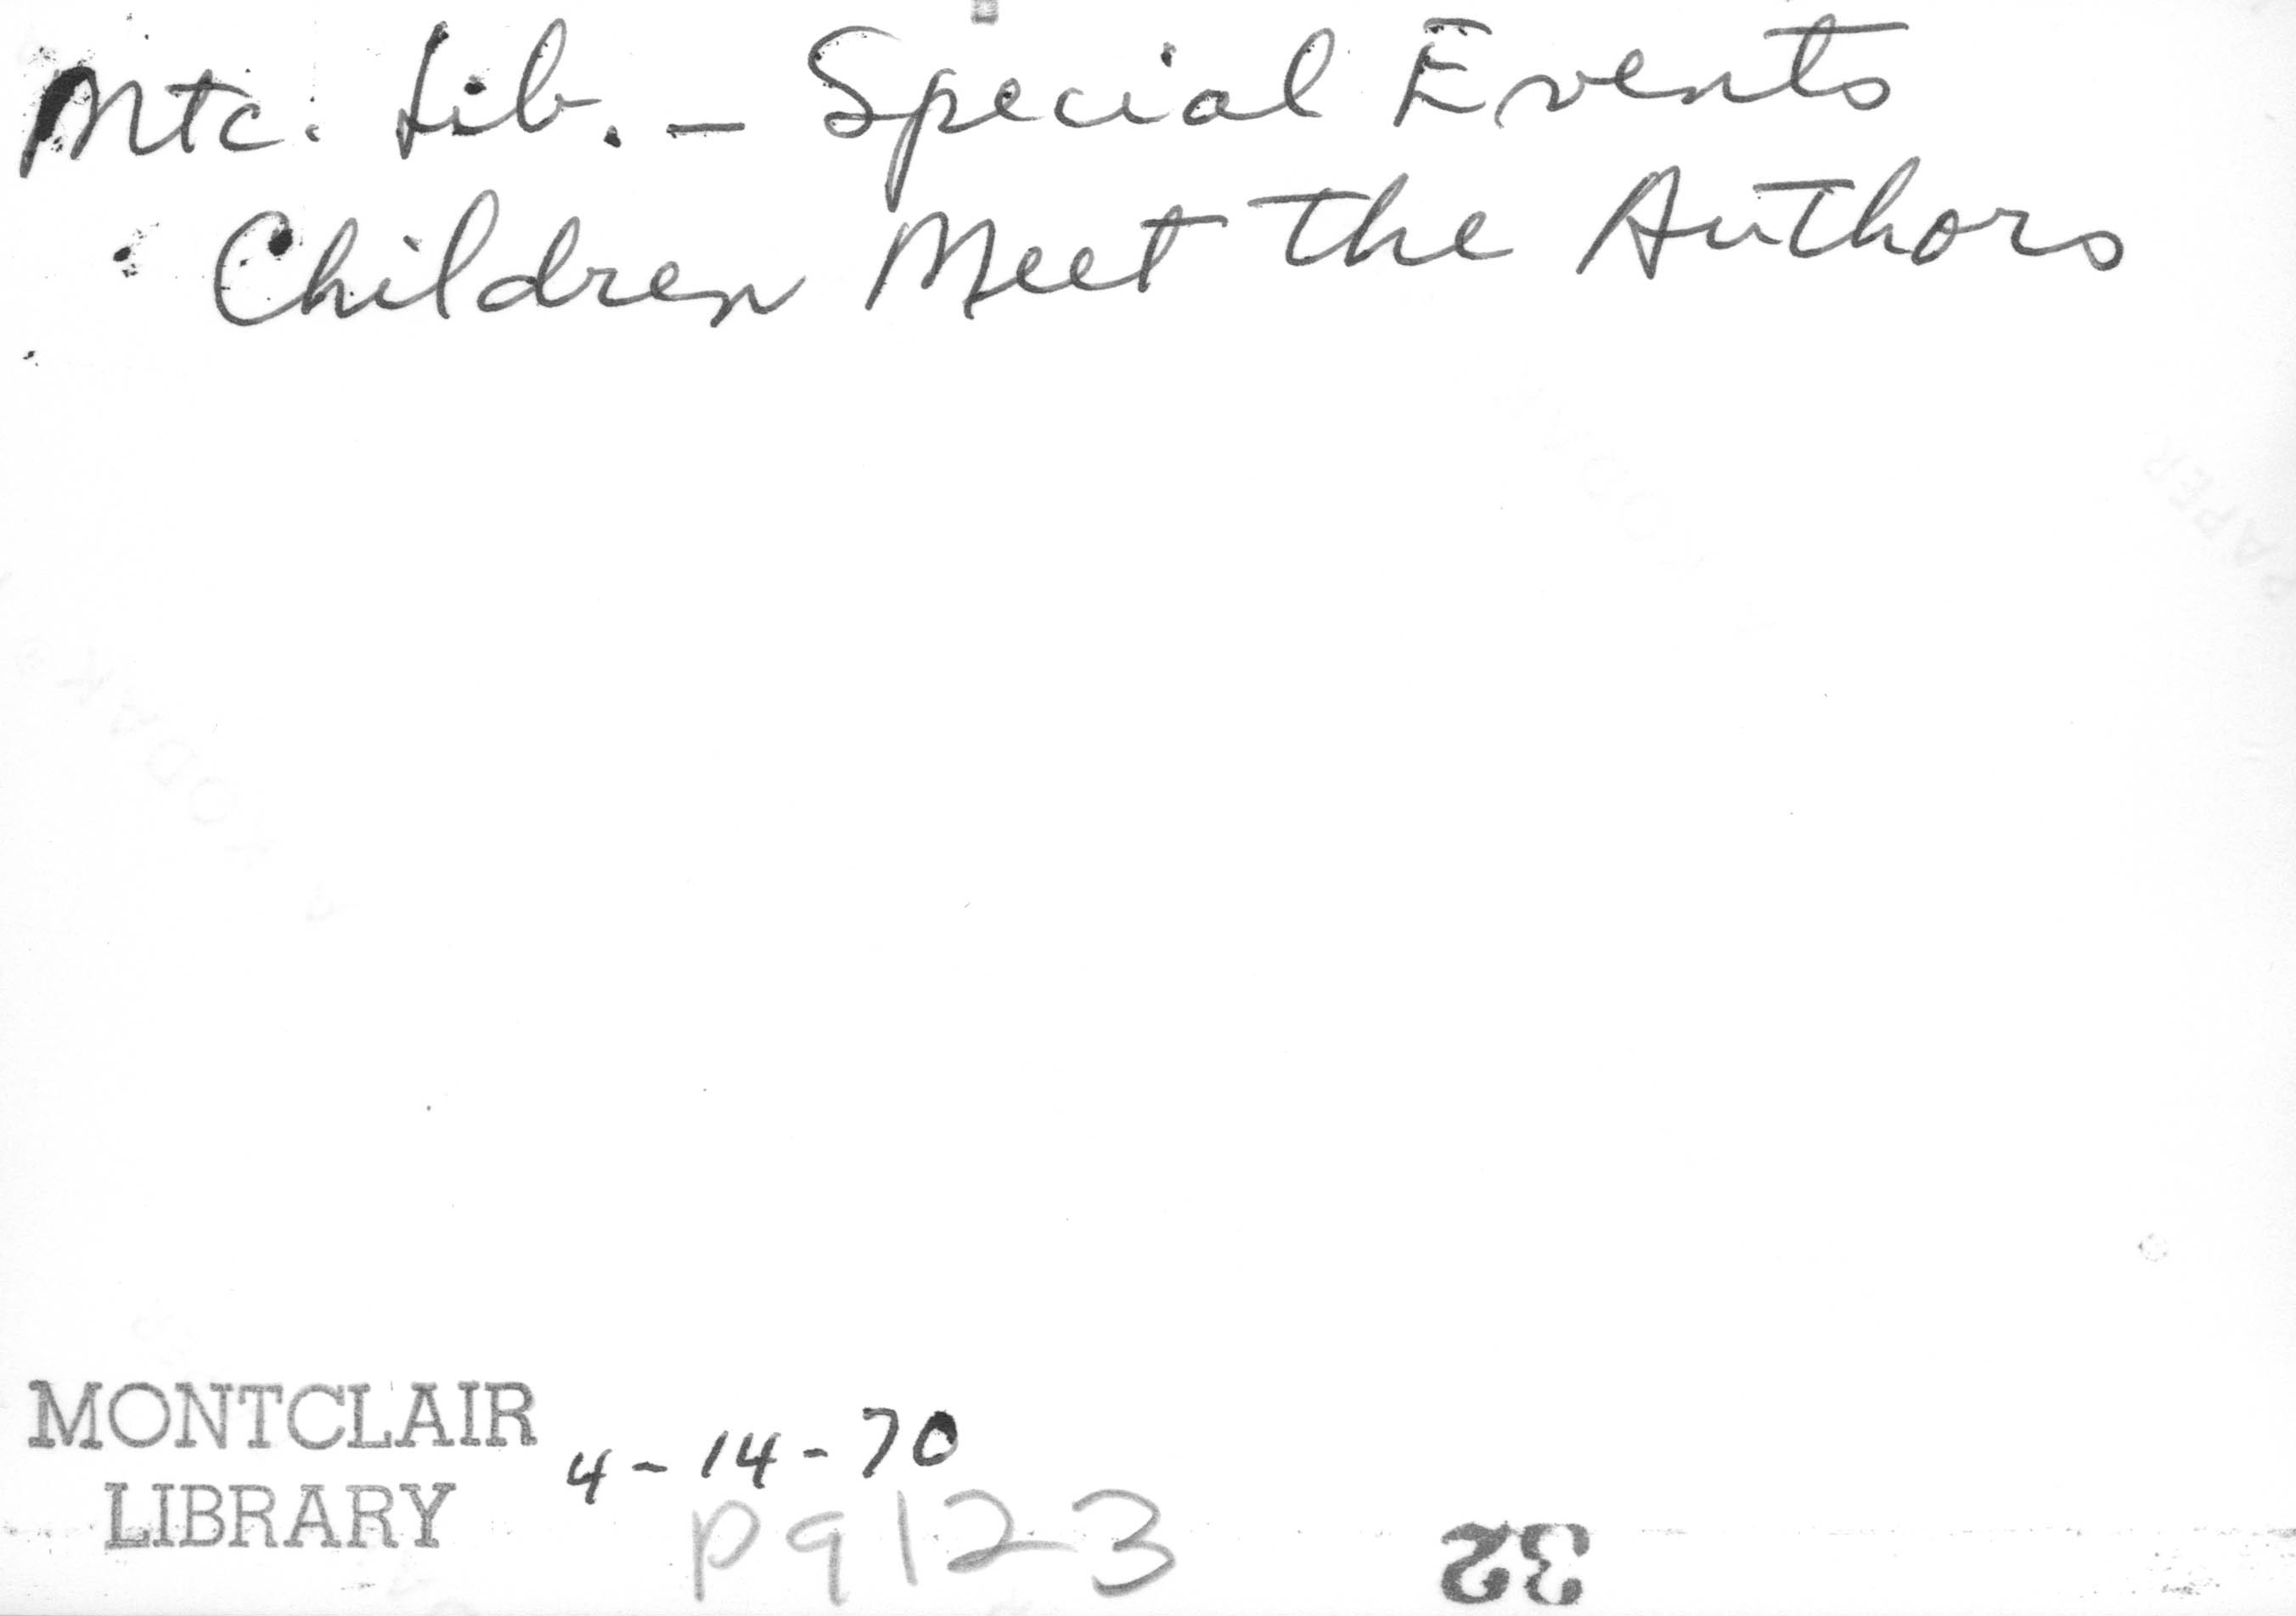 Mtc. Lib. - Special Events
Children Meet the Authors
PAPER
KODAK
MONTCLAIR
LIBRARY
4-14-70
P9123
32